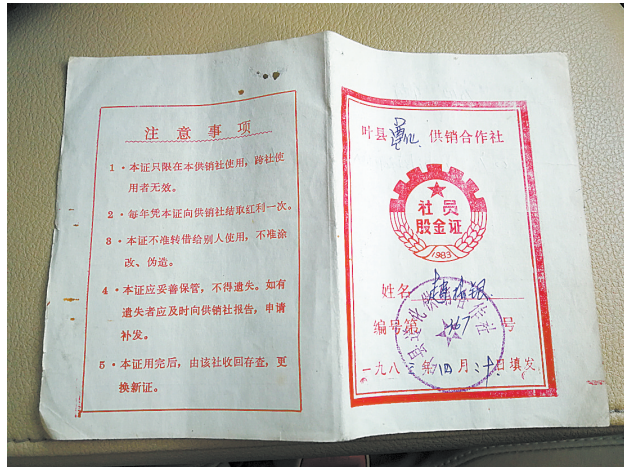 注意事项
1·本证只限在本供销社使用，跨社使
用者无效。
2·每年凭本证向供销社结取红利一次。
3·本证不准转借给别人使用，不准涂
改、伪造。
4·本证应妥善保管，不得遗失。如有
遗失者应及时向供销社报告，申请
补发。
5·本证用完后，由该社收回存查，更
换新证。
叶县 供销合作社
社员
股金证
1983
姓名
编号第 号
一九八 年 四月二十日填发